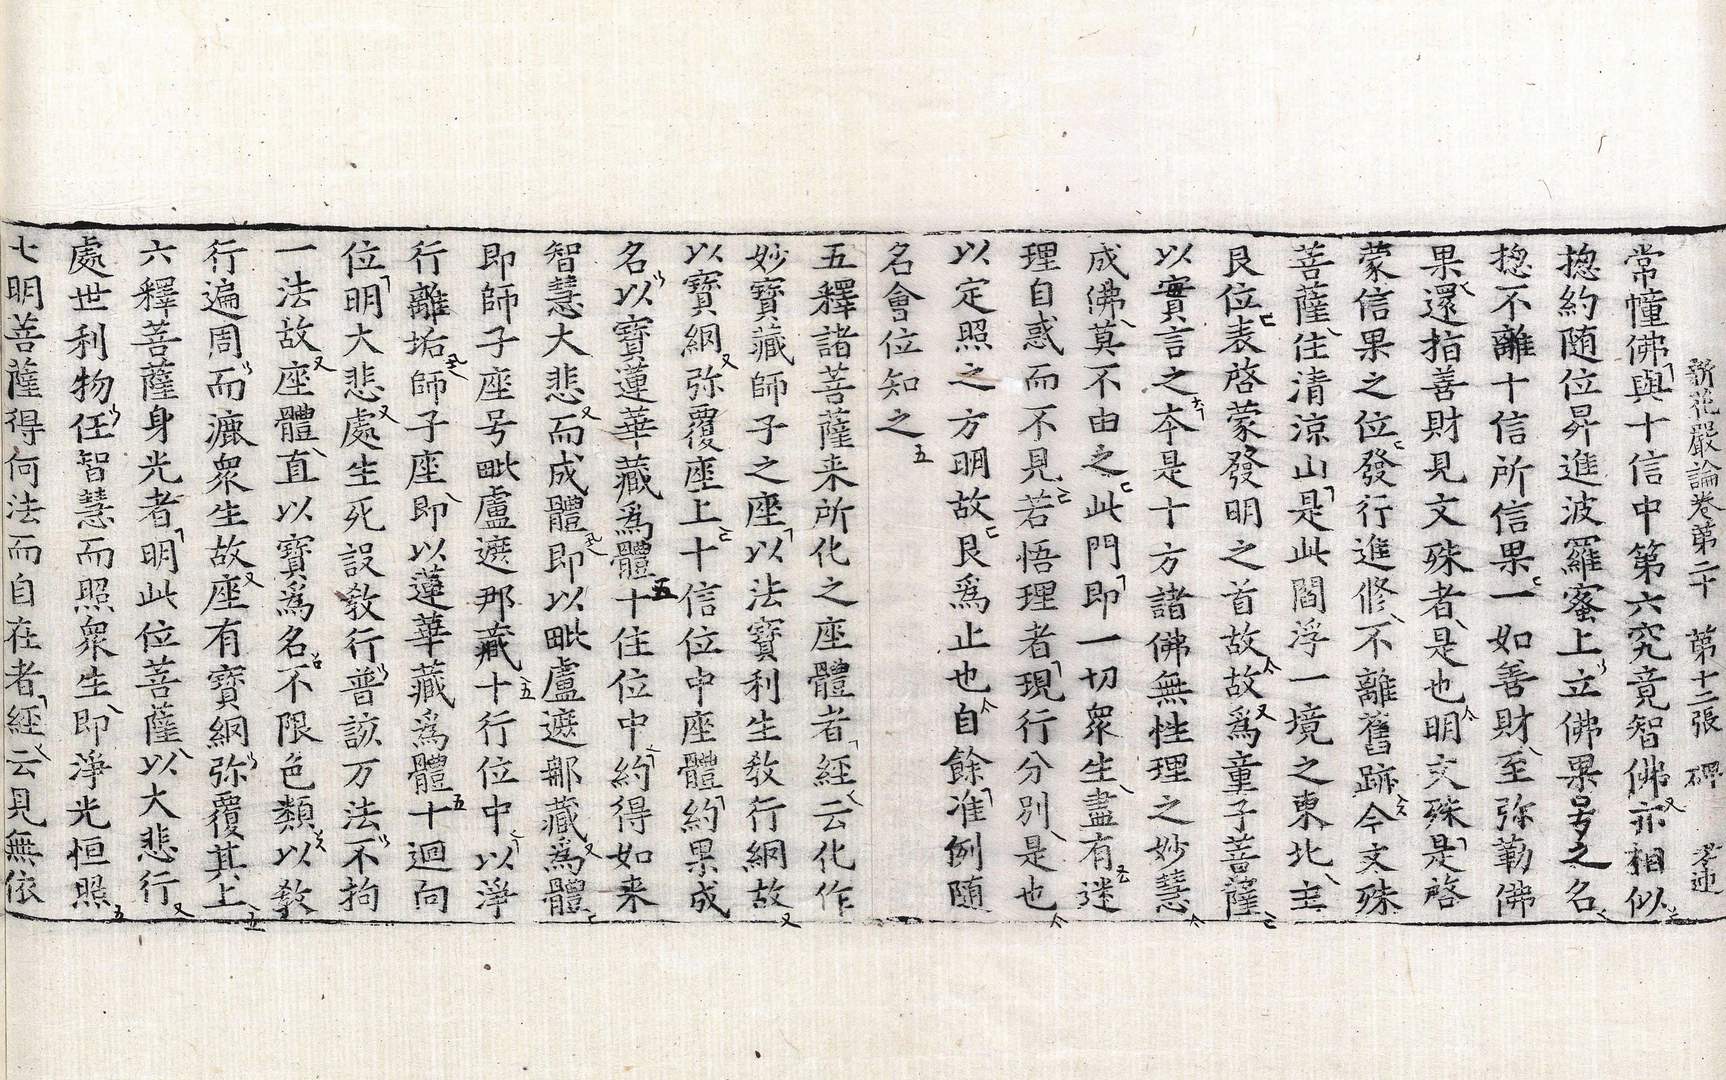 新花嚴論卷第二十 第十二張 碑 孝連
常幢佛與十信中第六究竟智佛亦相似
揔約随位昇進波羅蜜上立佛果号之名
揔不離十信所信果一如善財至弥勒佛
果還指善財見文殊者是也明文殊是啓
蒙信果之位發行進修不離舊跡今文殊
菩薩住清涼山是此閻浮一境之東北主
艮位表啓蒙發明之首故故爲童子菩薩
以實言之夲是十方諸佛無性理之妙慧
成佛莫不由之此門即一切衆生盡有迷
理自惑而不見若悟理者現行分別是也
以定照之方明故艮爲止也自餘准例随
名會位知之
五釋諸菩薩来所化之座體者經云化作
妙寶藏師子之座以法寶利生教行網故
以寶網弥覆座上十信位中座體約果成
名以寶蓮華藏爲體十住位中約得如来
智慧大悲而成體即以毗盧遮那藏爲體
即師子座号毗盧遮那藏十行位中以淨
行離垢師子座即以蓮華藏爲體十迴向
位明大悲處生死設教行普該万法不拘
一法故座體直以寶爲名不限色類以教
行遍周而漉衆生故座有寶網弥覆其上
六釋菩薩身光者明此位菩薩以大悲行
處世利物任智慧而照衆生即淨光恒照
七明菩薩得何法而自在者經云見無依